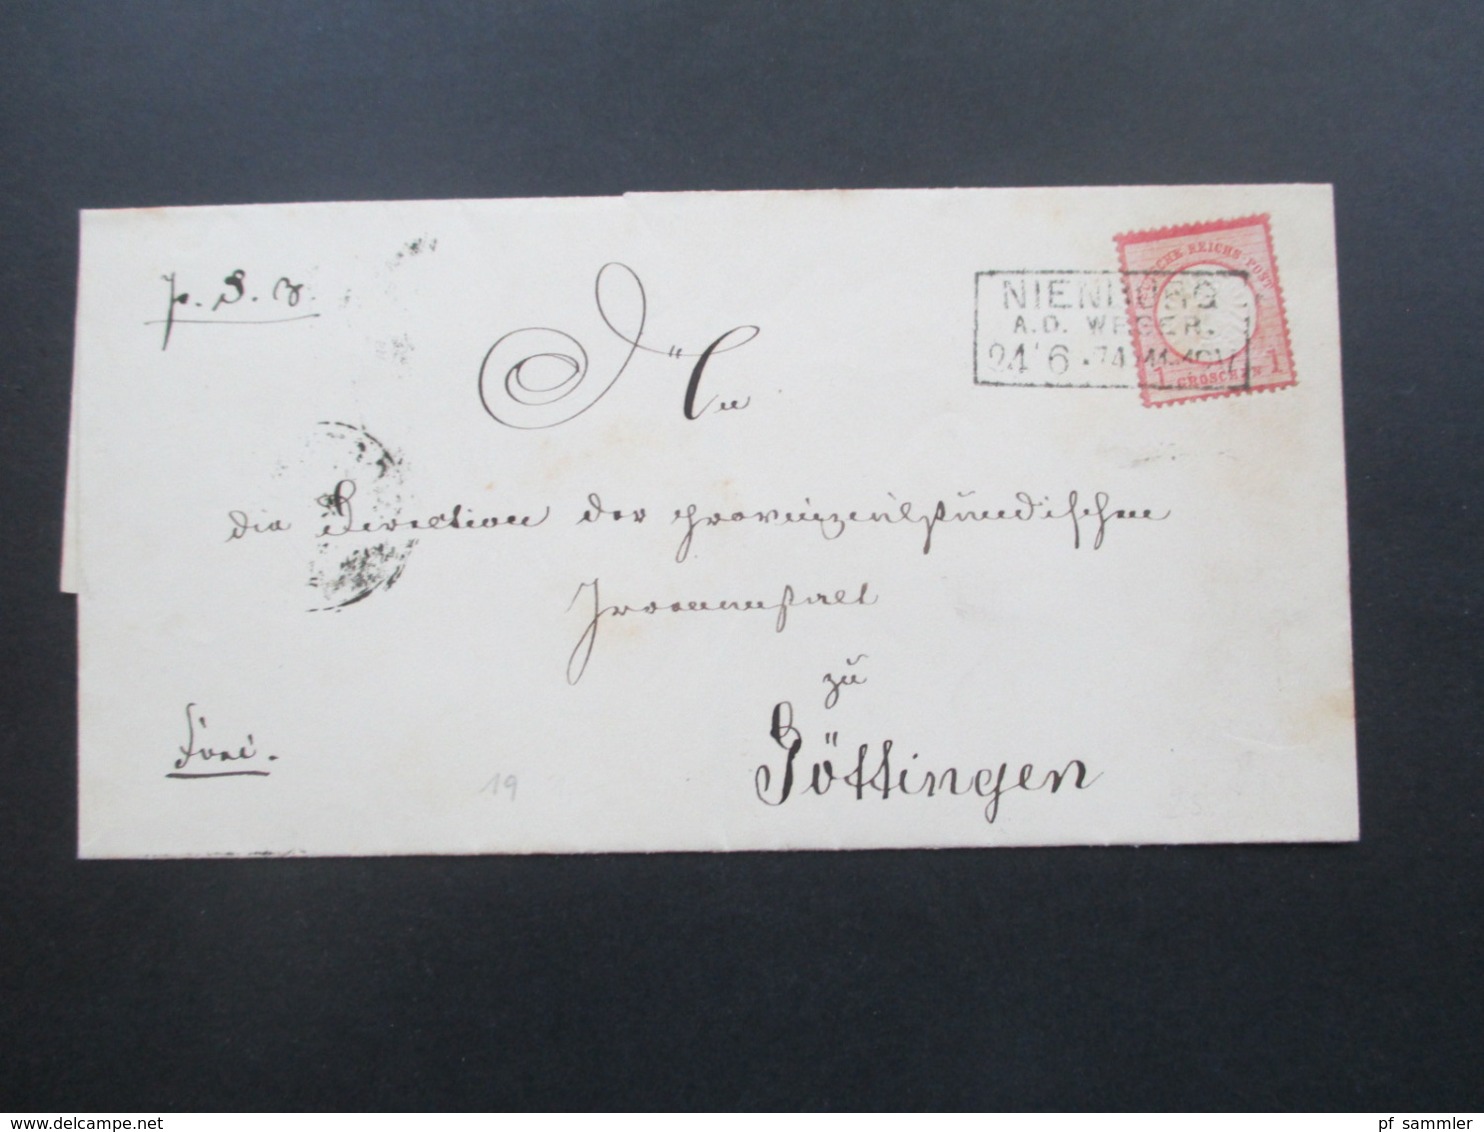 p. S. r.
An
die Direction der provinzialständischen
Irrenanstalt
zu
Göttingen
Frei.
NIENBURG
A.D. WESER.
24 6 74
DEUTSCHE REICHS-POST
1 GROSCHEN 1
19
delcampe.net
pf_sammler